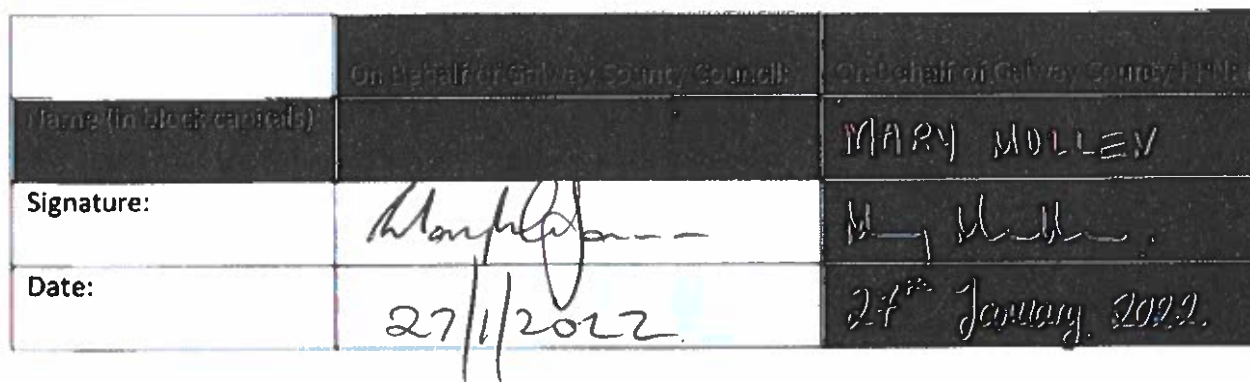 On Behalf of Galway County Council: On Behalf of Galway County PPN:
Name (in block capitals) MARY MULLEN
Signature:
Date: 27/1/2022. 27th January. 2022.